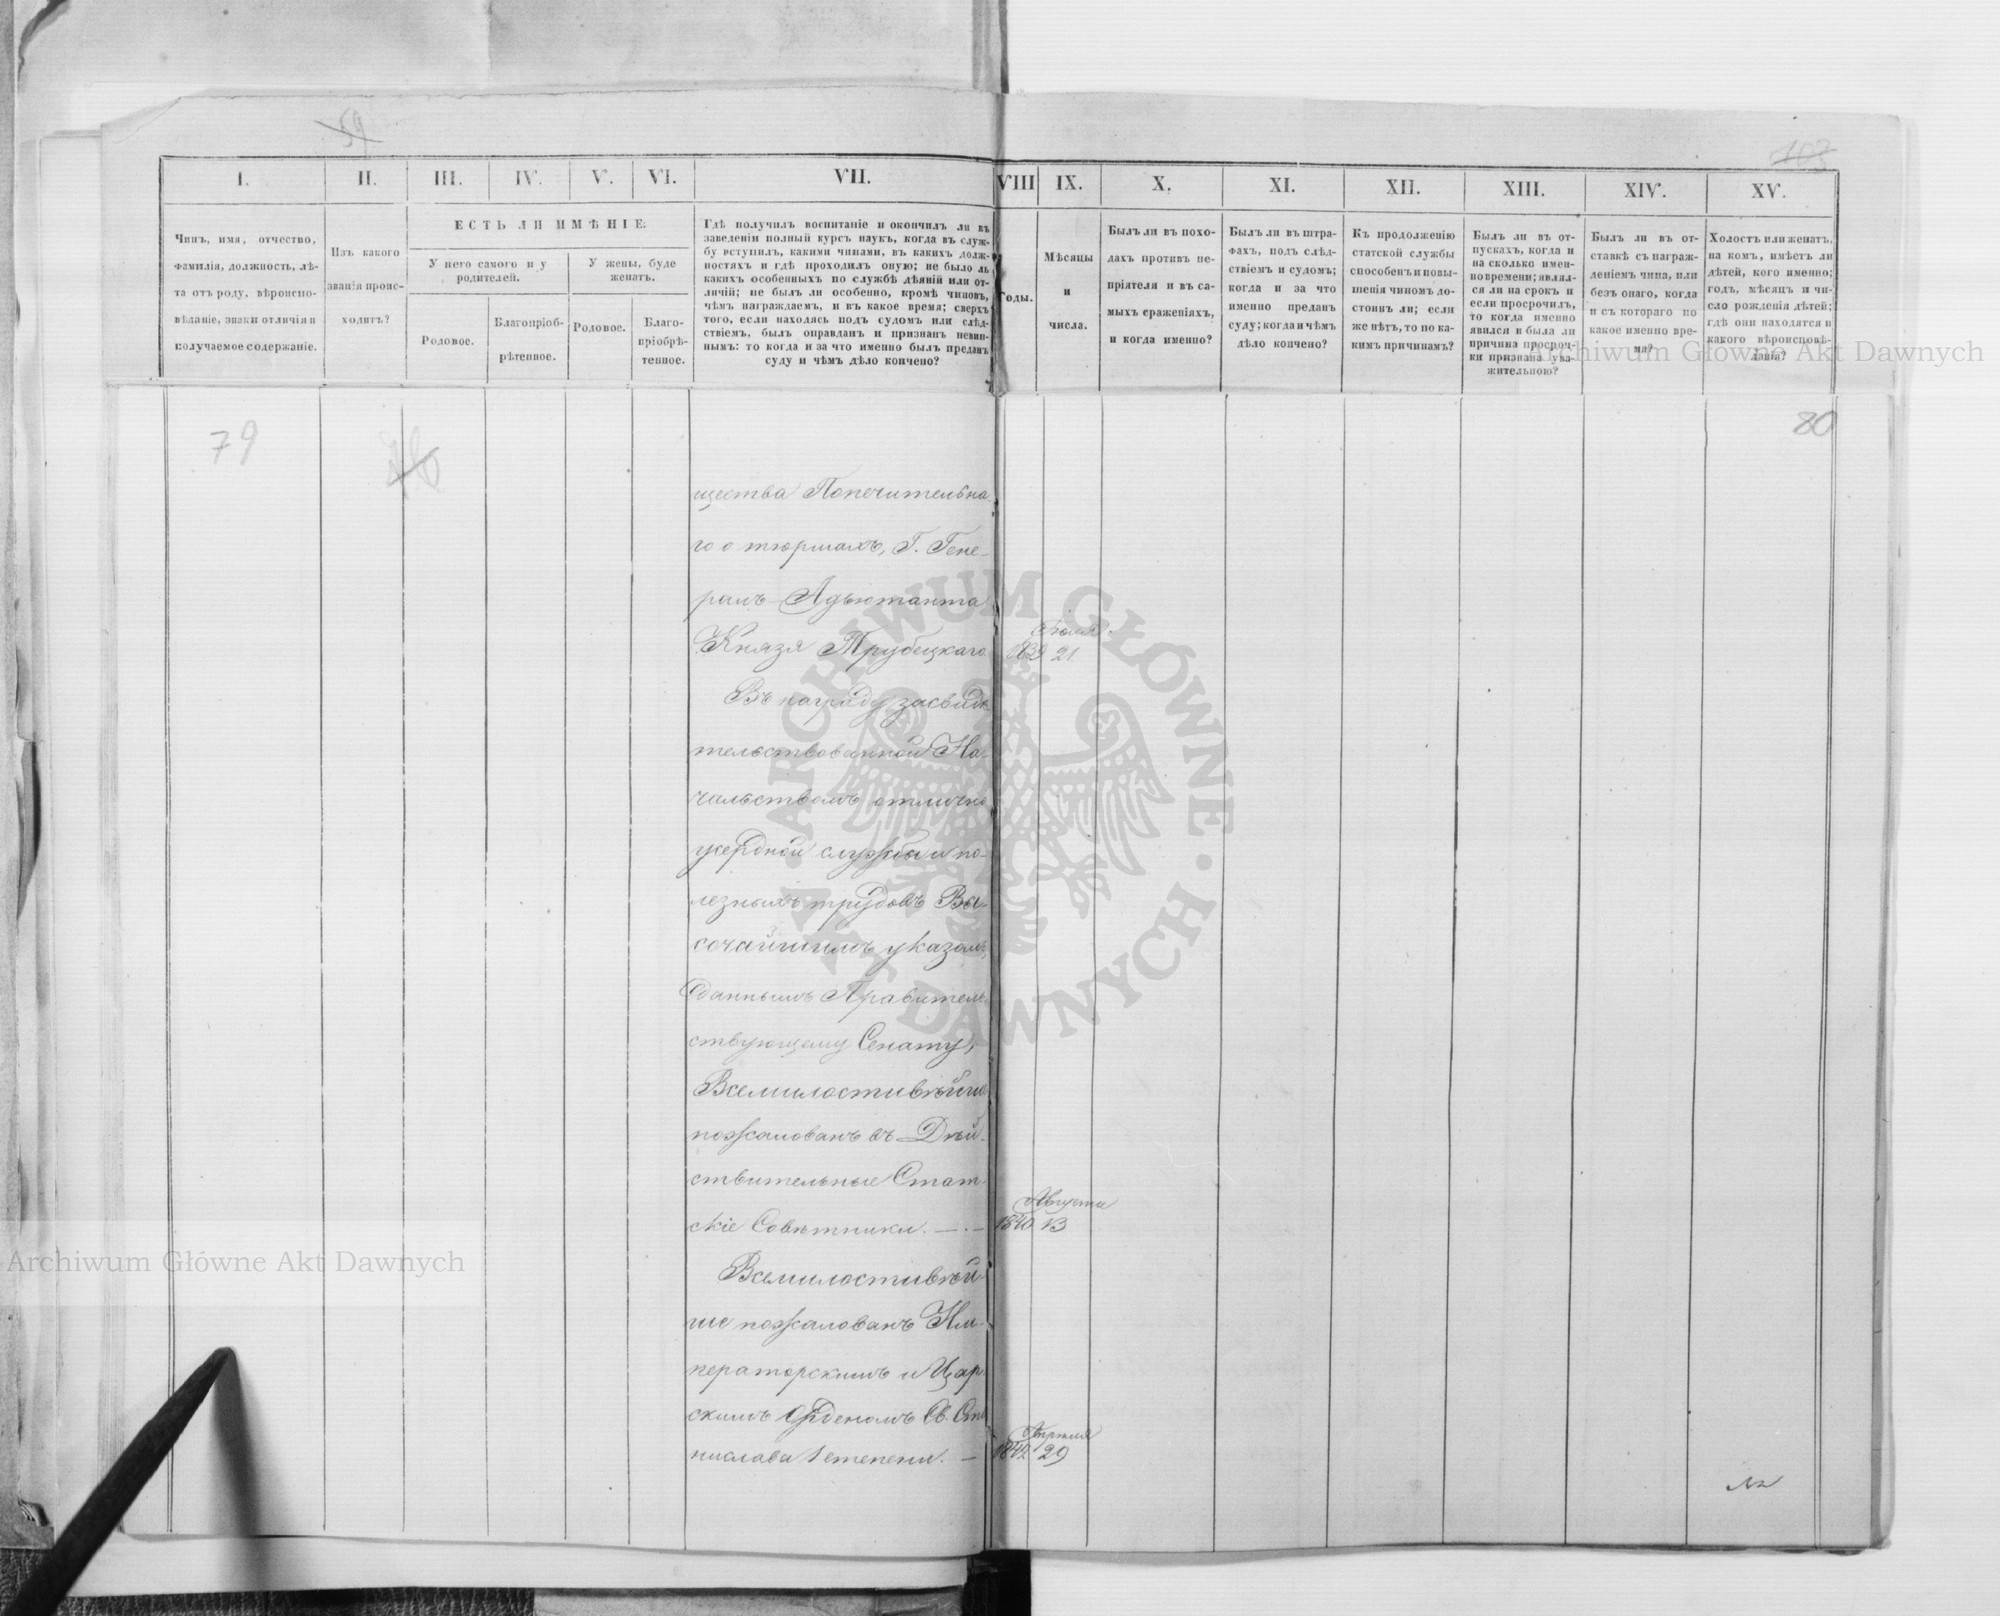 59
103
I.
II.
III.
IV.
V.
VI.
VII.
VIII
IX.
X.
XI.
XII.
XIII.
XIV.
XV.
Чинъ, имя, отчество,
фамилія, должность, лѣ-
та отъ роду, вѣроиспо-
вѣданіе, знаки отличія и
получаемое содержаніе.
Изъ какого
званія проис-
ходитъ?
ЕСТЬ ЛИ ИМѢНІЕ:
У него самого и у
родителей.
У жены, буде
женатъ.
Родовое.
Благопріоб-
рѣтенное.
Родовое.
Благо-
пріобрѣ-
тенное.
Гдѣ получилъ воспитаніе и окончилъ ли въ
заведеніи полный курсъ наукъ, когда въ служ-
бу вступилъ, какими чинами, въ какихъ долж-
ностяхъ и гдѣ проходилъ оную; не было ль
какихъ особенныхъ по службѣ дѣяній или от-
личій; не былъ ли особенно, кромѣ чиновъ,
чѣмъ награждаемъ, и въ какое время; сверхъ
того, если находясь подъ судомъ или слѣд-
ствіемъ, былъ оправданъ и признанъ невин-
нымъ: то когда и за что именно былъ преданъ
суду и чѣмъ дѣло кончено?
Годы.
Мѣсяцы
и
числа.
Былъ ли въ похо-
дахъ противъ не-
пріятеля и въ са-
мыхъ сраженіяхъ,
и когда именно?
Былъ ли въ штра-
фахъ, подъ слѣд-
ствіемъ и судомъ;
когда и за что
именно преданъ
суду; когда и чѣмъ
дѣло кончено?
Къ продолженію
статской службы
способенъ и повы-
шенія чиномъ до-
стоинъ ли; если
же нѣтъ, то по ка-
кимъ причинамъ?
Былъ ли въ от-
пускахъ, когда и
на сколько имен-
но времени; являл-
ся ли на срокъ и
если просрочилъ,
то когда именно
явился и была ли
причина просроч-
ки признана ува-
жительною?
Былъ ли въ от-
ставкѣ съ награж-
деніемъ чина, или
безъ онаго, когда
и съ котораго по
какое именно вре-
мя?
Холостъ или женатъ,
на комъ, имѣетъ ли
дѣтей, кого именно;
годъ, мѣсяцъ и чи-
сло рожденія дѣтей;
гдѣ они находятся и
какого вѣроисповѣ-
данія?
Archiwum Główne Akt Dawnych
79
80
щества Попечительна-
го о тюрмахъ, Г. Гене-
ралъ-Адъютанта
Князя Трубецкаго
Іюля
1839 21.
Въ награду засвидѣ-
тельствованной На-
чальствомъ отлично
усердной службы и по-
лезныхъ трудовъ Вы-
сочайшимъ указомъ,
даннымъ Правитель-
ствующему Сенату,
Всемилостивѣйше
пожалованъ въ Дѣй-
ствительные Стат-
скіе Совѣтники. — . —
Августа
1840 13
Всемилостивѣй-
ше пожалованъ Им-
ператорскимъ и Цар-
скимъ Орденомъ Св. Ста-
нислава 1 степени. —
Апрѣля
1842 29
ARCHIWUM GŁÓWNE · AKT DAWNYCH ·
Archiwum Główne Akt Dawnych